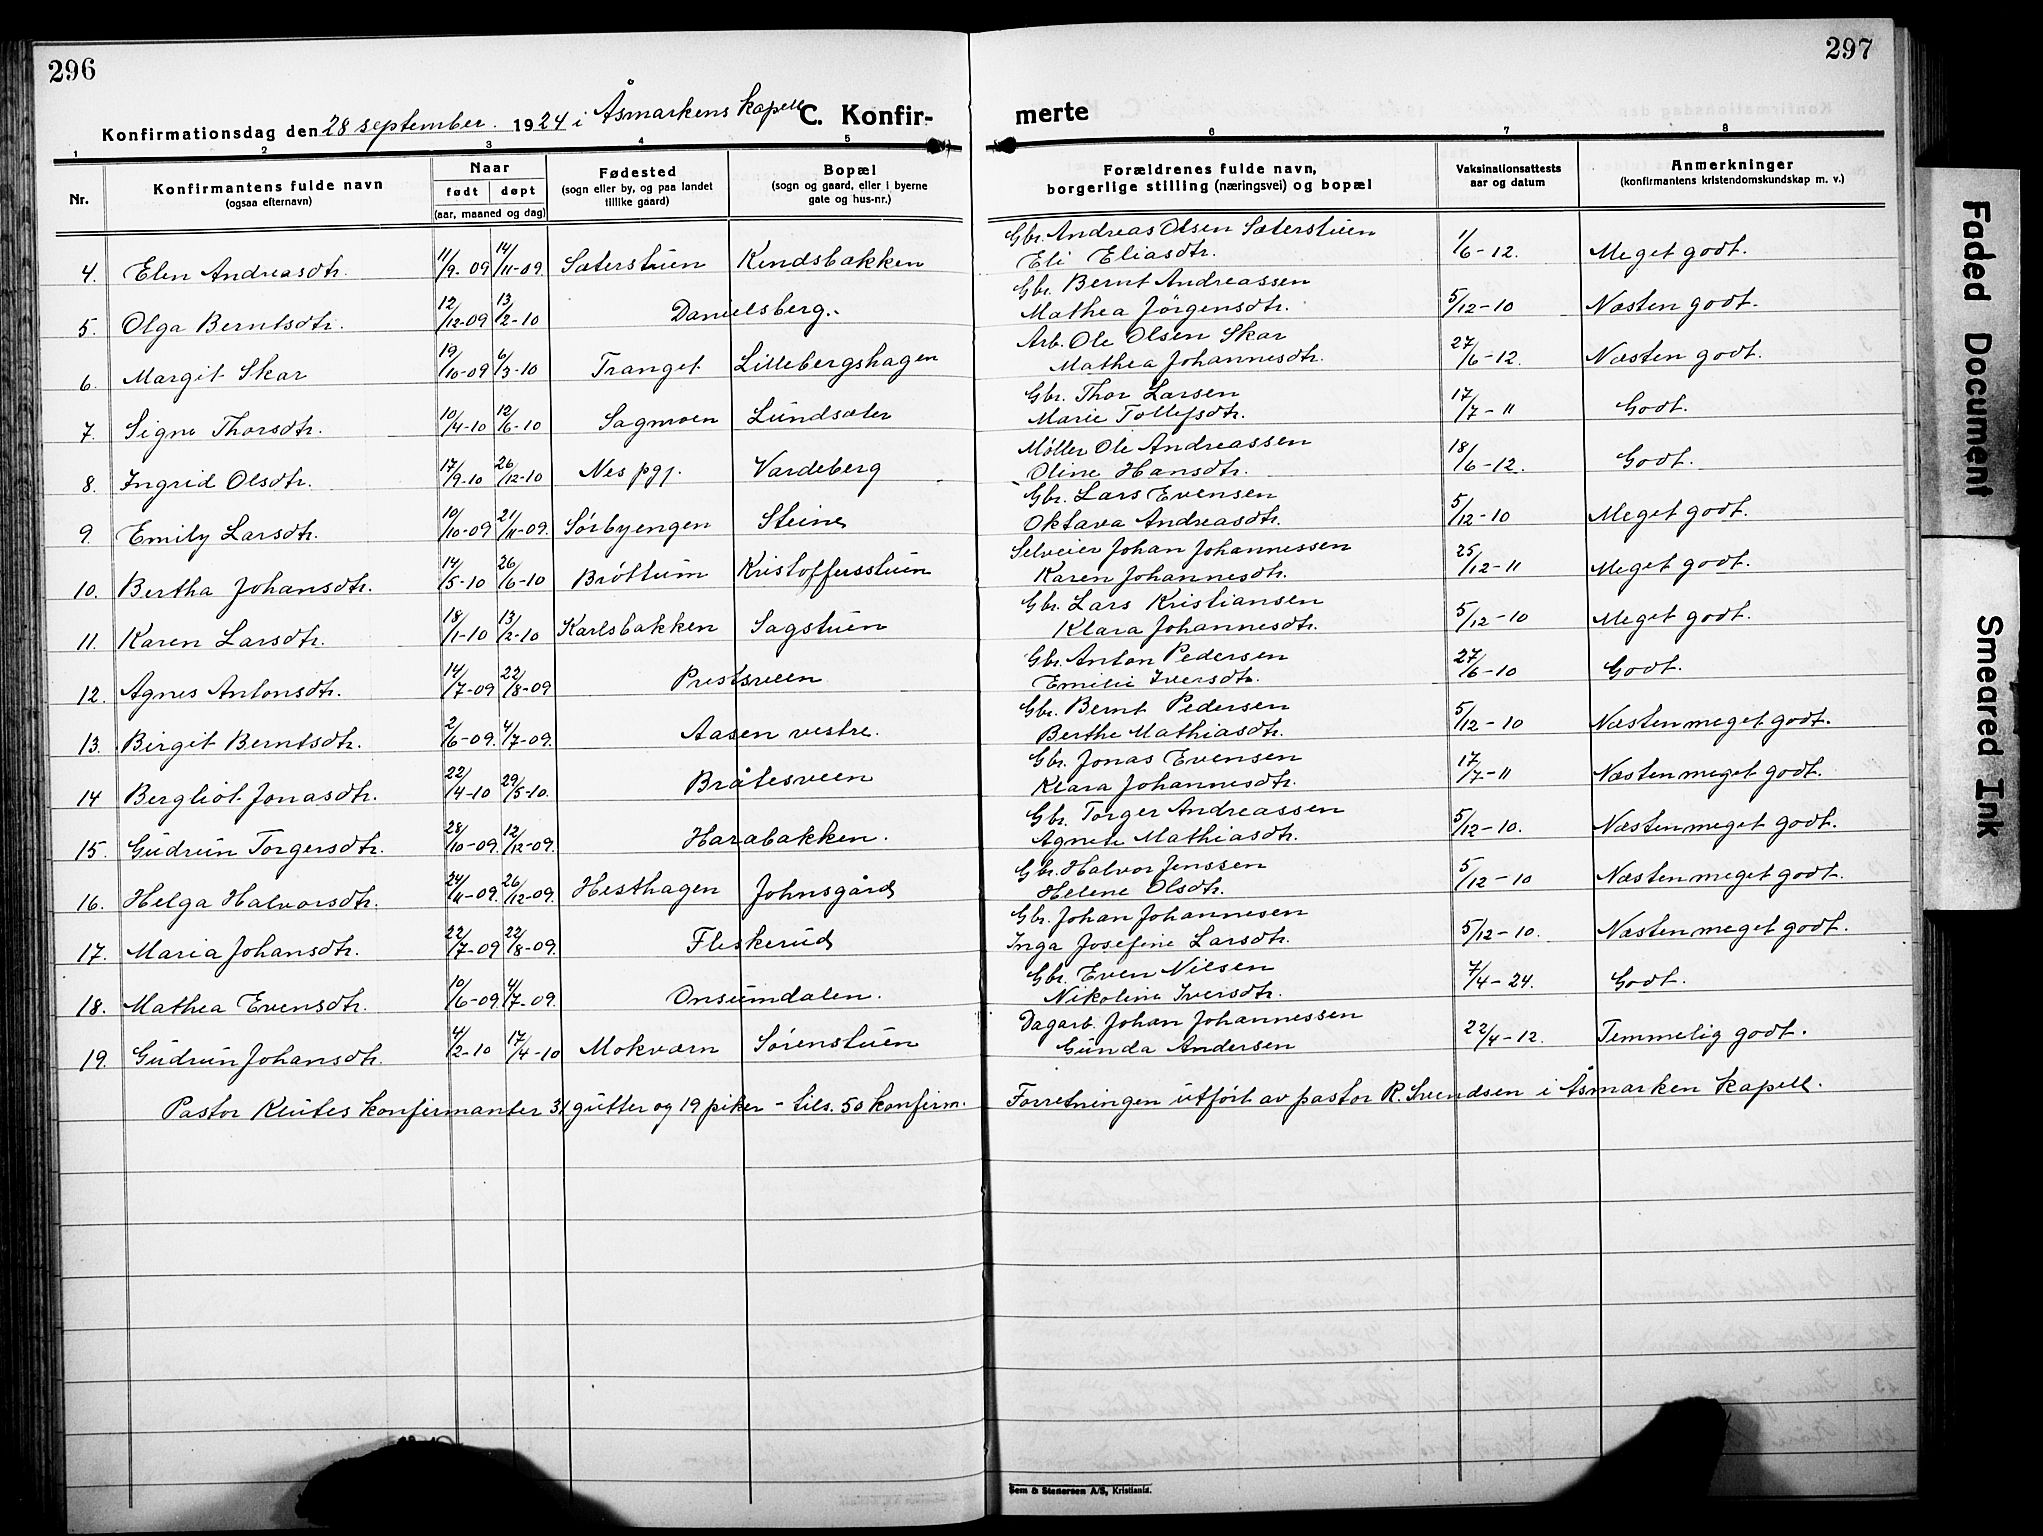 296
Konfirmationsdag den 28 september. 1924 i Åsmarkens kapell C. Konfir-
1 2 3 4 5
Nr. Konfirmantens fulde navn (ogsaa efternavn) Naar født døpt (aar, maaned og dag) Fødested (sogn eller by, og paa landet tillike gaard) Bopæl (sogn og gaard, eller i byerne gate og hus-nr.)
4. Elen Andreasdtr. 11/9-09 14/11-09 Sæterstuen Kindsbakken
5. Olga Berntsdtr. 12/12-09 13/2-10 Danielsberg.
6. Margit Skar 19/10-09 6/3-10 Tranget Lillebergshagen
7. Signe Thorsdtr. 10/4-10 12/6-10 Sagmoen Lundsæter
8. Ingrid Olsdtr. 17/9-10 26/12-10 Nes pgj. Vardeberg
9. Emily Larsdtr. 10/10-09 21/11-09. Sørbyengen Steine
10. Bertha Johansdtr. 14/5-10 26/6-10 Brøttum Kristoffersstuen
11. Karen Larsdtr. 18/1-10 13/2-10 Karlsbakken Sagstuen
12. Agnes Antonsdtr. 14/7-09 22/8-09 Prestsveen
13. Birgit Berntsdtr. 2/6-09. 4/7-09. Aasen vestre.
14 Bergliot Jonasdtr. 22/4-10 29/5-10. Bråtesveen
15. Gudrun Torgersdtr. 28/10-09. 12/12-09. Harabakken.
16. Helga Halvorsdtr. 24/11-09. 26/12-09. Hesthagen Johnsgård
17. Maria Johansdtr. 22/7-09 22/8-09. Fleskerud
18. Mathea Evensdtr. 10/6-09. 4/7-09. Onsumdalen.
19. Gudrun Johansdtr. 4/2-10 17/4-10 Mokværn Sørenstuen
Pastor Klutes konfirmanter 31 gutter og 19 piker - tils. 50 konfirm.
297
merte
6 7 8
Forældrenes fulde navn, borgerlige stilling (næringsvei) og bopæl Vaksinationsattests aar og datum Anmerkninger (konfirmantens kristendomskundskap m. v.)
Gbr. Andreas Olsen Sæterstuen
Eli Eliasdtr. 1/6-12. Meget godt.
Gbr. Bernt Andreassen
Mathea Jörgensdtr. 5/12-10 Næsten godt.
Arb. Ole Olsen Skar
Mathea Johannesdtr. 27/6-12. Næsten godt.
Gbr. Thor Larsen
Marie Tollefsdtr. 17/7-11 Godt.
Møller Ole Andreassen
Oline Hansdtr. 18/6-12. Godt.
Gbr. Lars Evensen
Oktava Andreasdtr. 5/12-10 Meget godt.
Selveier Johan Johannessen
Karen Johannesdtr. 25/12-11 Meget godt.
Gbr. Lars Kristiansen
Klara Johannesdtr. 5/12-10 Meget godt.
Gbr. Anton Pedersen
Emilie Iversdtr. 27/6-10 Godt.
Gbr. Bernt Pedersen
Berthe Mathiasdtr. 5/12-10 Næsten meget godt.
Gbr. Jonas Evensen
Klara Johannesdtr. 17/7-11 Næsten meget godt.
Gbr. Torger Andreassen
Agnete Mathiasdtr. 5/12-10. Næsten meget godt.
Gbr. Halvor Jenssen
Helene Olsdtr. 5/12-10 Næsten meget godt.
Gbr. Johan Johannesen
Inga Josefine Larsdtr. 5/12-10. Næsten meget godt.
Gbr. Even Nilsen
Nikoline Iversdtr. 7/4-24. Godt.
Dagarb. Johan Johannessen
Gunda Andersen 22/4-12. Temmelig godt.
Forretningen utført av pastor R. Svendsen i Åsmarken kapell.
Sem & Stenersen A/S, Kristiania.
Faded Document
Smeared Ink